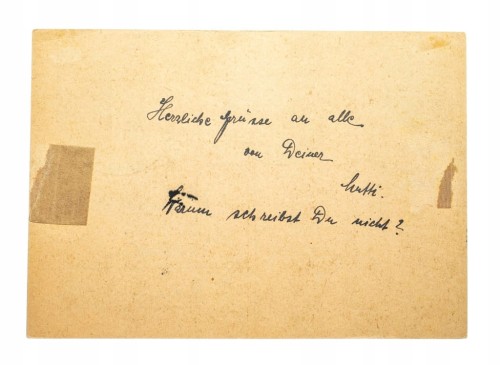 Herzliche Grüsse an alle
von Deiner
Mutti.
Warum schreibst Du nicht?